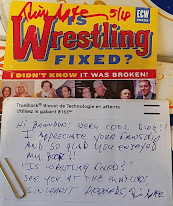 5/10
ECW PRESS
IS
WRESTLING
FIXED?
I DIDN'T KNOW IT WAS BROKEN!
TrueBlock® Brevet de Technologie en attente
Utilisez le gabarit 8163
HI BRANDON! VERY COOL BLOG!!
I APPRECIATE YOUR FANSHIP
AND SO GLAD YOU ENJOYED
MY BOOK!!
"IS WRESTLING FIXED?"
SEE YOU AT THE MATCHES
SINCEREST REGARDS,